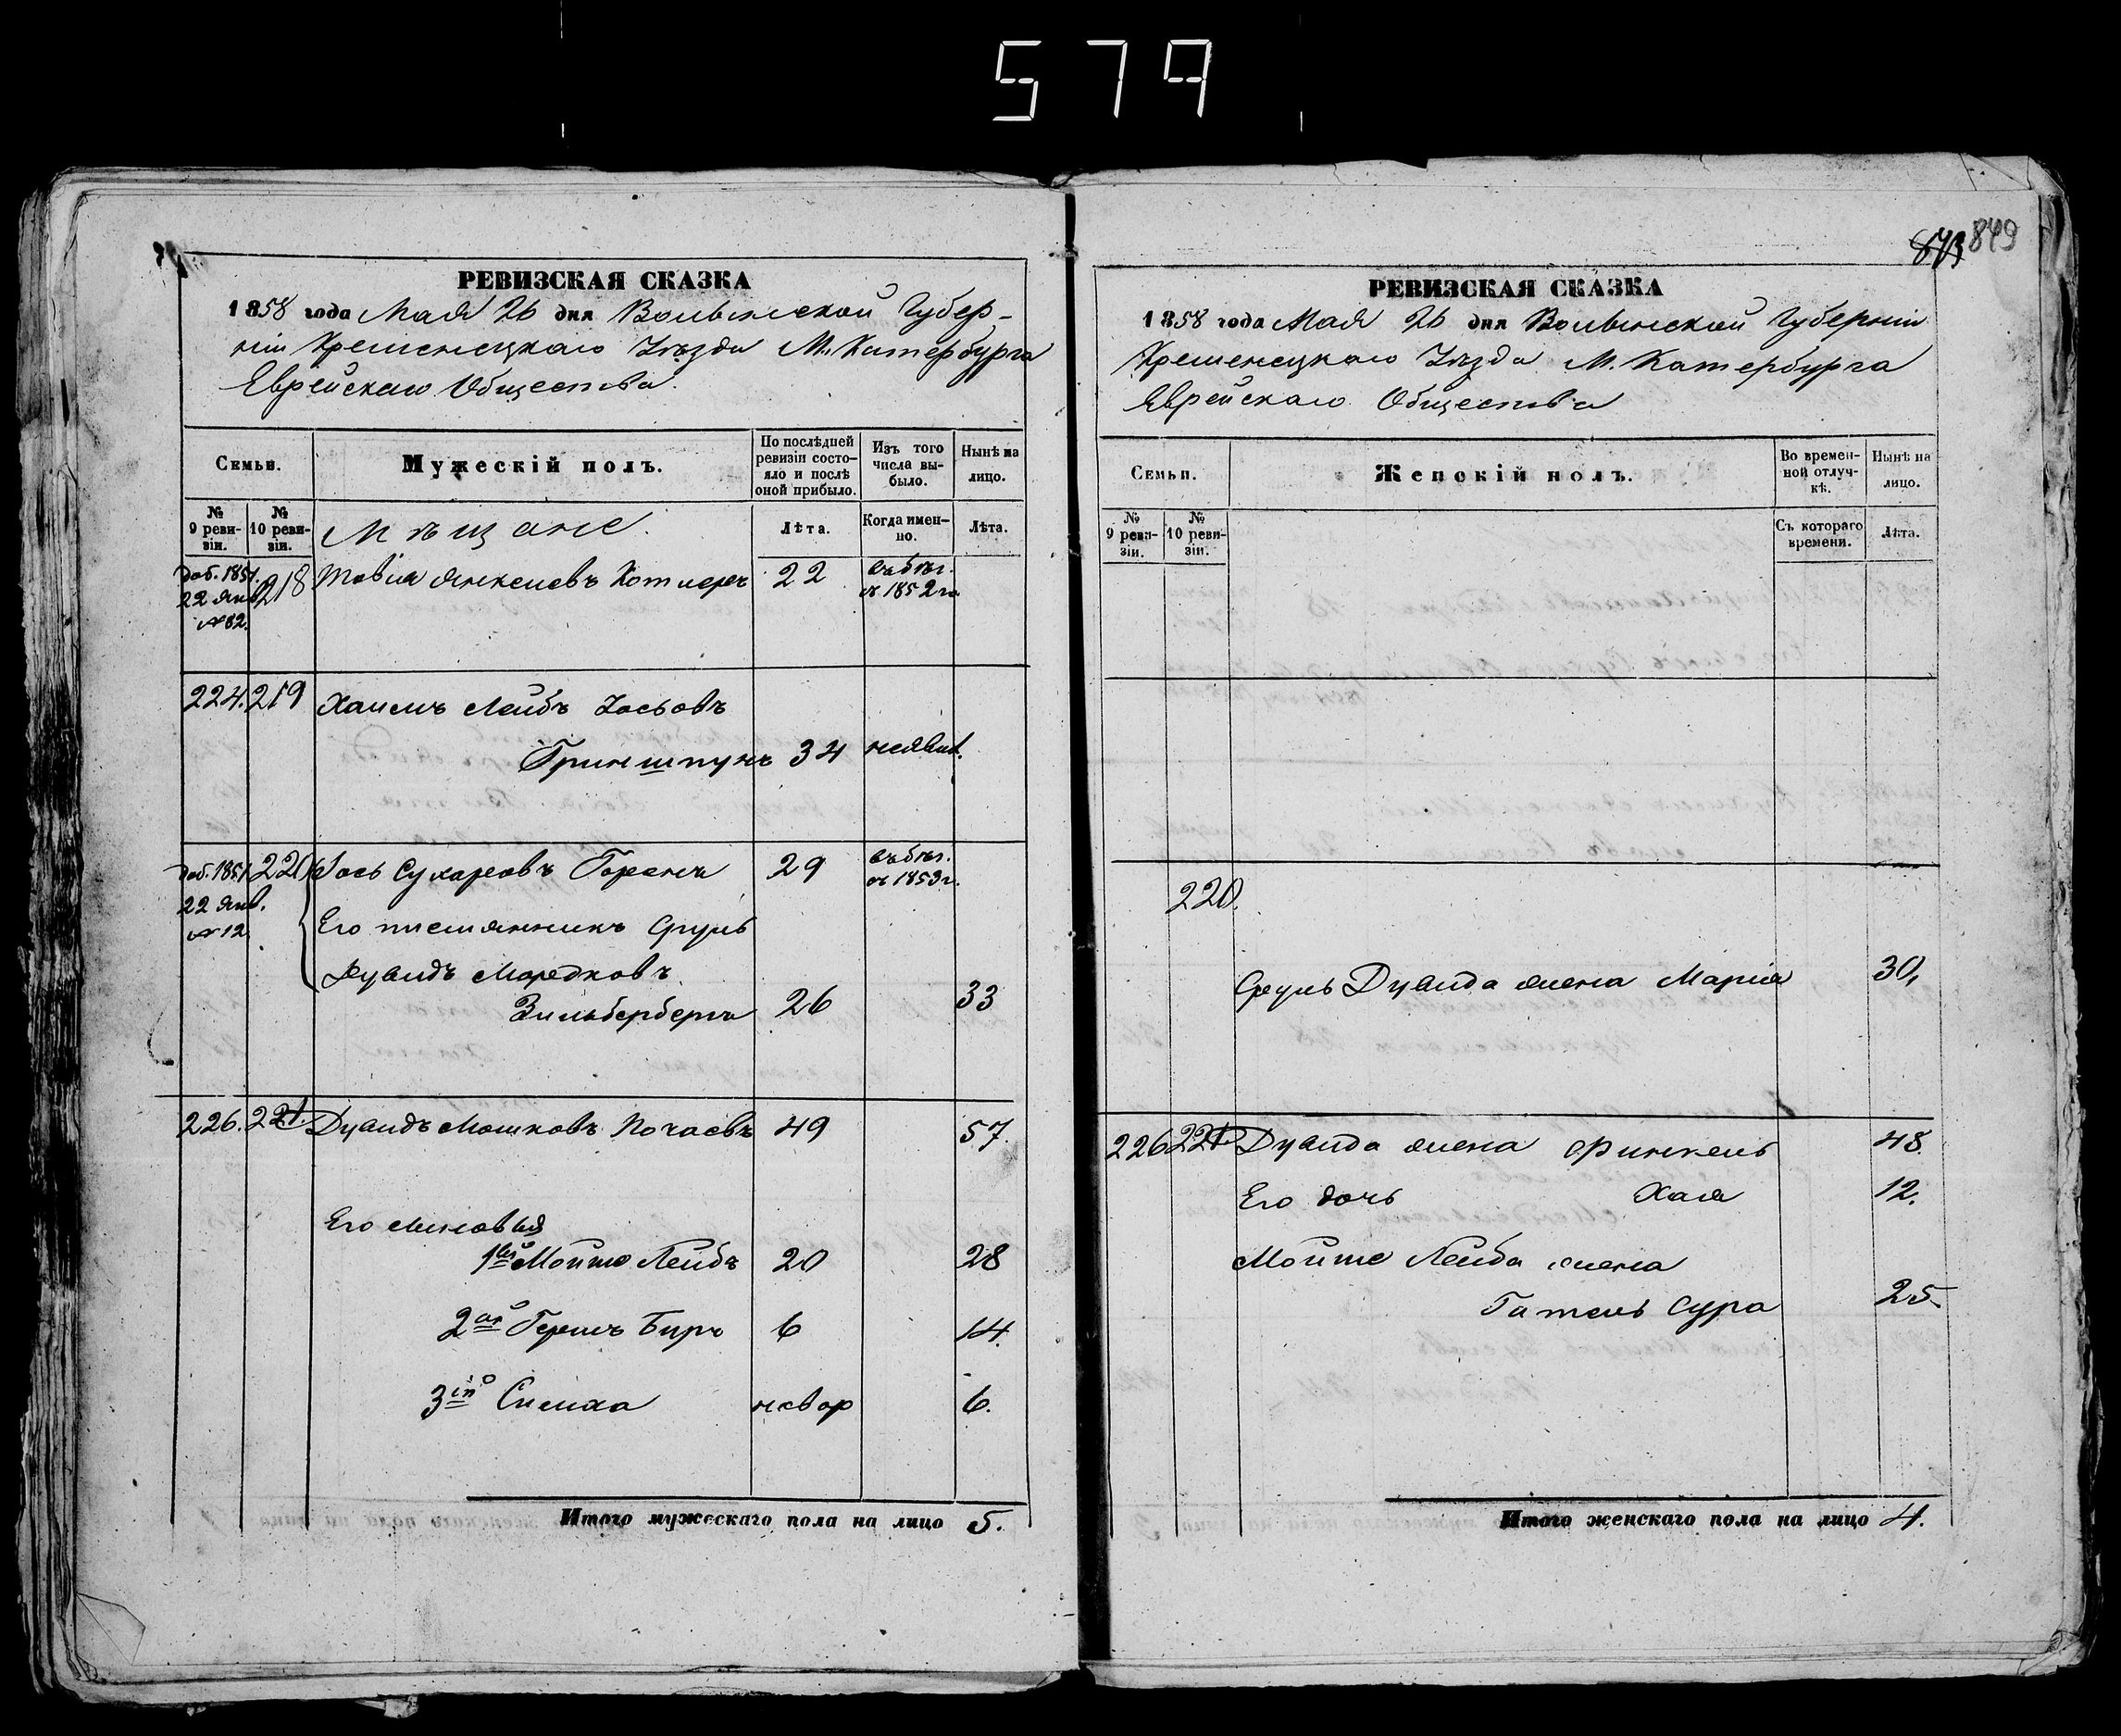 579
РЕВИЗСКАЯ СКАЗКА
1858 года Мая 26 дня Волынской Губер-
ніи Кременецкаго Уѣзда М. Катербурга
Еврейскаго Общества.
Семьи.
Мужескій полъ.
По послѣдней ревизіи состо-яло и послѣ оной прибыло.
Изъ того числа вы-было.
Нынѣ на лицо.
№ 9 реви-зіи.
№ 10 реви-зіи.
Мѣщане.
Лѣта.
Когда имен-но.
Лѣта.
доб. 1851. 218 Товія Янкелевъ 22 въ бѣг.
22 Янв. с 1852 го
№ 82.
224. 219 Хаимъ Лейбъ Іосьовъ
Гриншпунъ 34 неявив.
доб. 1851 220 Іось 29 въ бѣг.
22 Янв. съ 1853 г.
№ 12. Его племянникъ Сруль
Дувидъ Мордковъ
Зильбербергъ 26 33
226. 221. Дувидъ Мошковъ Почаевъ 49 57.
Его сыновья
1ый Мойше Лейбъ 20 28
2ой Гершъ Беръ 6 14.
3ій Симха невор 6.
Итого мужескаго пола на лицо 5.
873 849
РЕВИЗСКАЯ СКАЗКА
1858 года Мая 26 дня Волынской Губерніи
Кременецкаго Уѣзда М. Катербурга
Еврейскаго Общества
Семьи.
Женскій полъ.
Во времен-ной отлуч-кѣ.
Нынѣ на лицо.
№ 9 реви-зіи.
№ 10 реви-зіи.
Съ котораго времени.
Лѣта.
220.
Сруль Дувида жена Марія 30,
226 221 Дувида жена Финкель 48.
Его дочь Хая 12.
Мойше Лейба жена
Гитель Сура 25.
Итого женскаго пола на лицо 4.